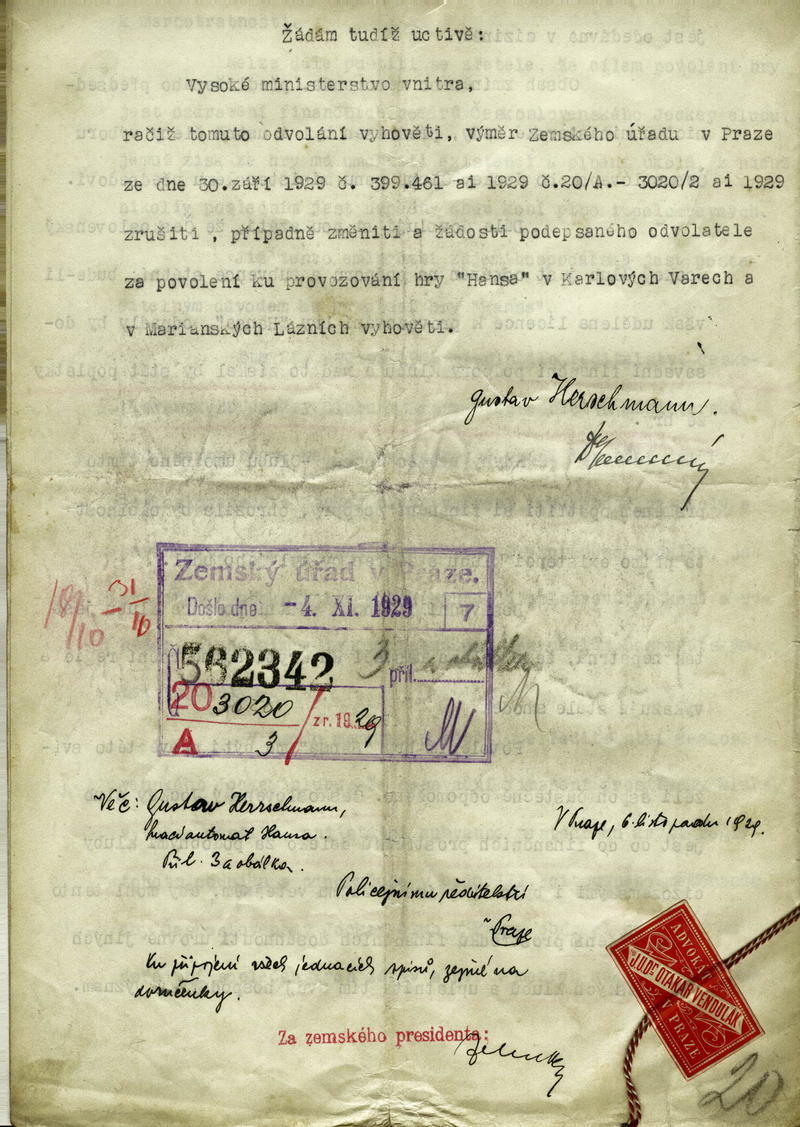 Žádám tudíž uctivě:
Vysoké ministerstvo vnitra,
račiž tomuto odvolání vyhověti, výměr Zemského úřadu v Praze
ze dne 30.září 1929 č. 399.461 ai 1929 č.20/A.- 3020/2 ai 1929
zrušiti , případně změniti a žádosti podepsaného odvolatele
za povolení ku provozování hry "Hansa" v Karlových Varech a
v Marianských Lázních vyhověti.
Gustav Herschmann.
Zemský úřad v Praze.
Došlo dne -4. XI. 1929 7
18/10 - 31/10
Č 562342 3 příl.
20 3020/ zr. 1929
A 3
Věc: Gustav Herrschmann,
hrací automat Hansa.
Příl. 3 a obálka.
V Praze, 6. listopadu 1929.
Policejnímu ředitelství
v Praze
Ku připojení všech jednacích spisů, zejmé na
doručenky.
Za zemského presidenta:
ADVOKÁT
JUDr OTAKAR VENDULÁK
V PRAZE
20